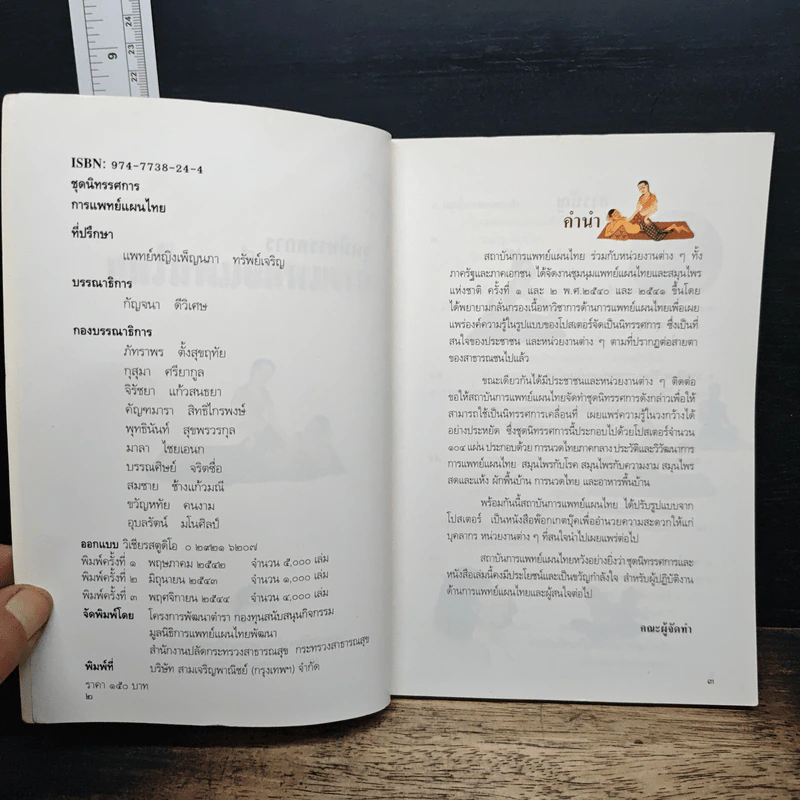 24
23
22
9
ISBN: 974-7738-24-4
ชุดนิทรรศการ
การแพทย์แผนไทย
ที่ปรึกษา
แพทย์หญิงเพ็ญนภา ทรัพย์เจริญ
บรรณาธิการ
กัญจนา ดีวิเศษ
กองบรรณาธิการ
ภัทราพร ตั้งสุขฤทัย
กุสุมา ศรียากูล
จิรัชยา แก้วสนธยา
คัญฑมารา สิทธิไกรพงษ์
พุทธินันท์ สุขพรวรกุล
มาลา ไชยเอนก
บรรณศิษย์ จริตซื่อ
สมชาย ช้างแก้วมณี
ขวัญหทัย คนงาม
อุบลรัตน์ มโนศิลป์
ออกแบบ วิเชียรสตูดิโอ ๐ ๒๙๒๑ ๖๒๐๗
พิมพ์ครั้งที่ ๑ พฤษภาคม ๒๕๔๒ จำนวน ๕,๐๐๐ เล่ม
พิมพ์ครั้งที่ ๒ มิถุนายน ๒๕๔๓ จำนวน ๑,๐๐๐ เล่ม
พิมพ์ครั้งที่ ๓ พฤศจิกายน ๒๕๔๔ จำนวน ๔,๐๐๐ เล่ม
จัดพิมพ์โดย โครงการพัฒนาตำรา กองทุนสนับสนุนกิจกรรม
มูลนิธิการแพทย์แผนไทยพัฒนา
สำนักงานปลัดกระทรวงสาธารณสุข กระทรวงสาธารณสุข
พิมพ์ที่ บริษัท สามเจริญพาณิชย์ (กรุงเทพฯ) จำกัด
ราคา ๑๕๐ บาท
๒
คำนำ
สถาบันการแพทย์แผนไทย ร่วมกับหน่วยงานต่าง ๆ ทั้ง
ภาครัฐและภาคเอกชน ได้จัดงานชุมนุมแพทย์แผนไทยและสมุนไพร
แห่งชาติ ครั้งที่ ๑ และ ๒ พ.ศ.๒๕๔๐ และ ๒๕๔๑ ขึ้นโดย
ได้พยายามกลั่นกรองเนื้อหาวิชาการด้านการแพทย์แผนไทยเพื่อเผย
แพร่องค์ความรู้ในรูปแบบของโปสเตอร์จัดเป็นนิทรรศการ ซึ่งเป็นที่
สนใจของประชาชน และหน่วยงานต่าง ๆ ตามที่ปรากฏต่อสายตา
ของสาธารณชนไปแล้ว
ขณะเดียวกันได้มีประชาชนและหน่วยงานต่าง ๆ ติดต่อ
ขอให้สถาบันการแพทย์แผนไทยจัดทำชุดนิทรรศการดังกล่าวเพื่อให้
สามารถใช้เป็นนิทรรศการเคลื่อนที่ เผยแพร่ความรู้ในวงกว้างได้
อย่างประหยัด ซึ่งชุดนิทรรศการนี้ประกอบไปด้วยโปสเตอร์จำนวน
๑๐๔ แผ่น ประกอบด้วย การนวดไทยภาคกลาง ประวัติและวิวัฒนาการ
การแพทย์แผนไทย สมุนไพรกับโรค สมุนไพรกับความงาม สมุนไพร
สดและแห้ง ผักพื้นบ้าน การนวดไทย และอาหารพื้นบ้าน
พร้อมกันนี้สถาบันการแพทย์แผนไทย ได้ปรับรูปแบบจาก
โปสเตอร์ เป็นหนังสือพ๊อกเกตบุ๊คเพื่ออำนวยความสะดวกให้แก่
บุคลากร หน่วยงานต่าง ๆ ที่สนใจนำไปเผยแพร่ต่อไป
สถาบันการแพทย์แผนไทยหวังอย่างยิ่งว่าชุดนิทรรศการและ
หนังสือเล่มนี้คงมีประโยชน์และเป็นขวัญกำลังใจ สำหรับผู้ปฏิบัติงาน
ด้านการแพทย์แผนไทยและผู้สนใจต่อไป
คณะผู้จัดทำ
๓